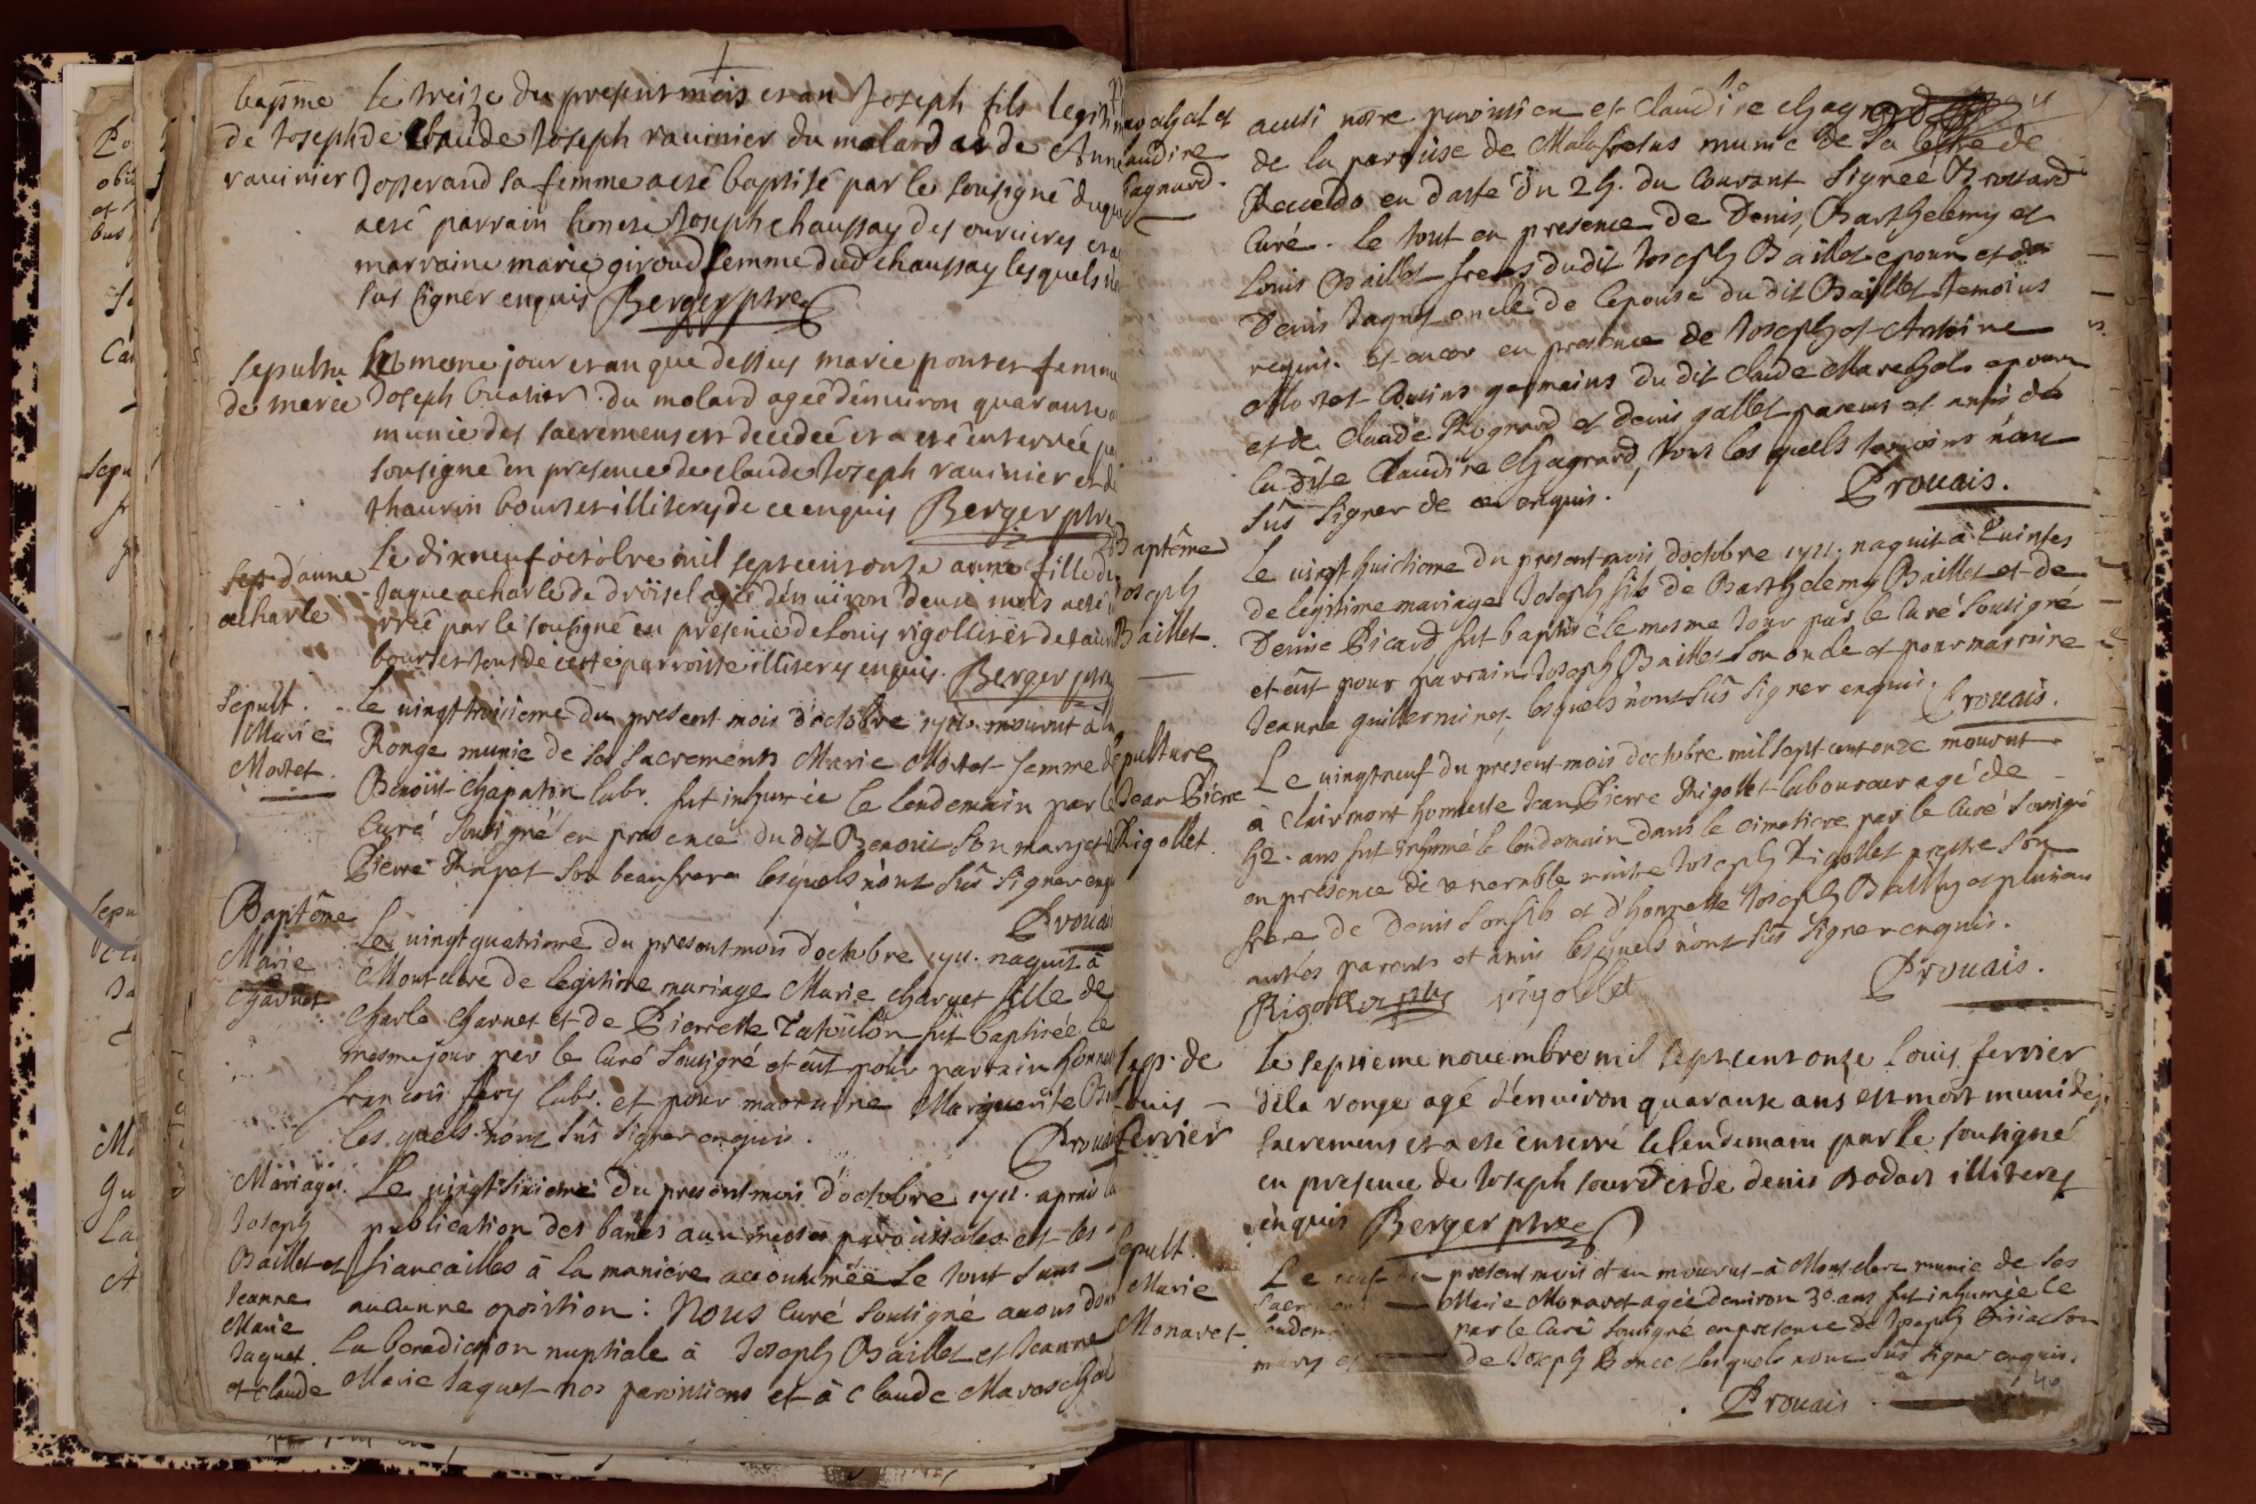 bapsme
de Joseph
rauinier
le treize du present mois et an Joseph fils legiti
de Claude Joseph rauinier du molard et de Anne
Josserand sa femme a esté baptisé par le sousigné duquel
a esté parrain honeste Joseph chaussay des ouruieres et a
marraine marie giroud femme dud chaussay lesquels n'on
sus signer enquis Berger ptre
sepultu
de marie
Le mesme jour et an que dessus marie pontet femme
Joseph buatier du molard ageé d'enuiron quarante a
munie des sacremens est decedeé et a esté enterreé pa
sousigné en presence de claude Joseph rauinier et de
thaurin bourset illiterés de ce enquis Berger ptre
sep d'anne
acharle
Le dixneuf octobre mil sept cens onze anne fille de
Jaque acharle de droisel ageé d'enuiron deux mois a esté
rreé par le sousigné en presence de Louis rigollet et de taurin
bourset tous de cette parroisse illiterés enquis. Berger ptre
Sepult.
Marie
Mortet.
Le uingt troisieme du present mois d'octobre 1711. mourut à la
Ronge munie de ses sacrements Marie Mortet femme de
Benoist Chapaton labr. fut inhumée le lendemain par le
Curé sousigné en presence du dit Benoit son mary et de
Pierre Rapet son beaufrere lesquels n'ont sus signer enqu
Prouais
Baptême
Marie
Charnet
Le uingt quatrieme du present mois d'octobre 1711. naquit à
Montclere de legitime mariage Marie Charnet fille de
Charle Charnet et de Pierrette Tahulon fut baptisée le
mesme jour par le Curé sousigné et eut pour parrain honne
françois fery labr. et pour marraine Marguerite
lesquels n'ont sus signer enquis.
Prouais
Mariages.
Joseph
Baillet et
Jeanne
Marie
Jaquet.
et claude
Le uingt sixieme du present mois d'octobre 1711. apres la
publication des bancs aux messes paroissiales et les
fiancailles à la maniere accoutumée le tout sans
aucunne oposition: Nous Curé sousigné auons donn
la benediction nuptiale à Joseph Baillet et Jeanne
Marie Jaquet nos paroissiens et à Claude Mareschal
claudine
Chagnard.
aussi nôtre paroissien et Claudine Chagnard
de la paroisse de Malafretas munie de sa lettre de
Recedo en datte du 24. du Courant signée Brossard
Curé. le tout en presence de Denis, Barthelemy et
Louis Baillet freres dudit Joseph Baillet epoux et de
Denis Jaquet oncle de l'epouse du dit Baillet temoins
requis. et encor en presence de Joseph et Antoine
Mortet Cousins germains du dit Claude Marechal epoux
et de Claude Rognard et denis gallet parens et amis de
la dite Claudine Chagnard, tous lesquels temoins n'ont
sus signer de ce enquis.
Prouais.
Baptême
Joseph
Baillet.
Le uingt huictieme du present mois d'octobre 1711. naquit à Tuintes
de legitime mariage Joseph fils de Barthelemy Baillet et de
Denise Picard fut baptisé le mesme jour par le Curé sousigné
et eut pour parrain Joseph Baillet son oncle et pour marraine
Jeanne guillerminet, lesquels n'ont sus signer enquis.
Prouais.
Sepulture
Jean Pierre
Rigollet.
Le uingtneuf du present mois d'octobre mil sept cent onze mourut
à Clairmont honneste Jean Pierre Rigollet laboureur agé de
42. ans fut inhumé le lendemain dans le cimetiere par le Curé sousigné
en presence de venerable mestre Joseph Rigollet prestre son
frere de Denis son fils et d'honneste Joseph Baillet et plusieurs
autres parents et amis lesquels n'ont sus signer enquis.
Rigollet ptre rigollet
Prouais.
sep. de
Louis
ferrier
le septieme nouembre mil sept cent onze Louis ferrier
de la ronge agé d'enuiron quarante ans est mort muni des
sacremens et a esté enterré le lendemain par le sousigné
en presence de Joseph sourd et de denis Bodart illiterés
enquis Berger ptre
Sepult.
Marie
Monavet
Le present mois et an mourut à Montclere munie de ses
Marie Monavet agée d'enuiron 30. ans fut inhumée le
par le Curé sousigné en presence de Joseph son
mary et de Joseph Poncet lesquels n'ont sus signer enquis.
Prouais